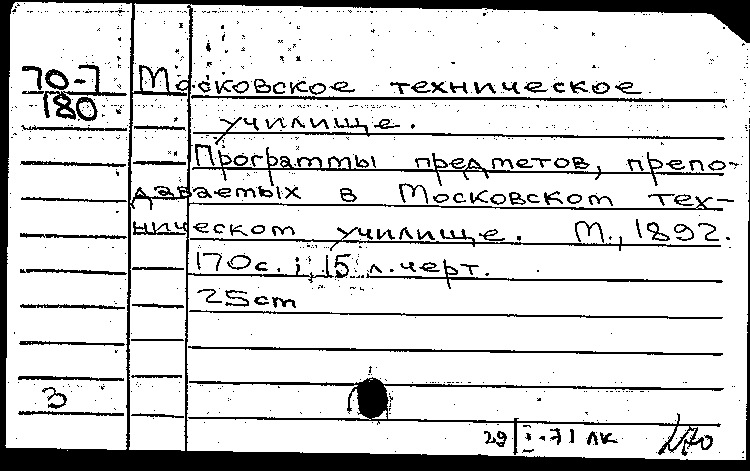 70-7 Московское техническое
180
училище.
Программы предметов, препо-
даваемых в Московском тех-
ническом училище. М., 1892.
170с.; 15 л.черт.
25cm
3
29 I-71 ЛК